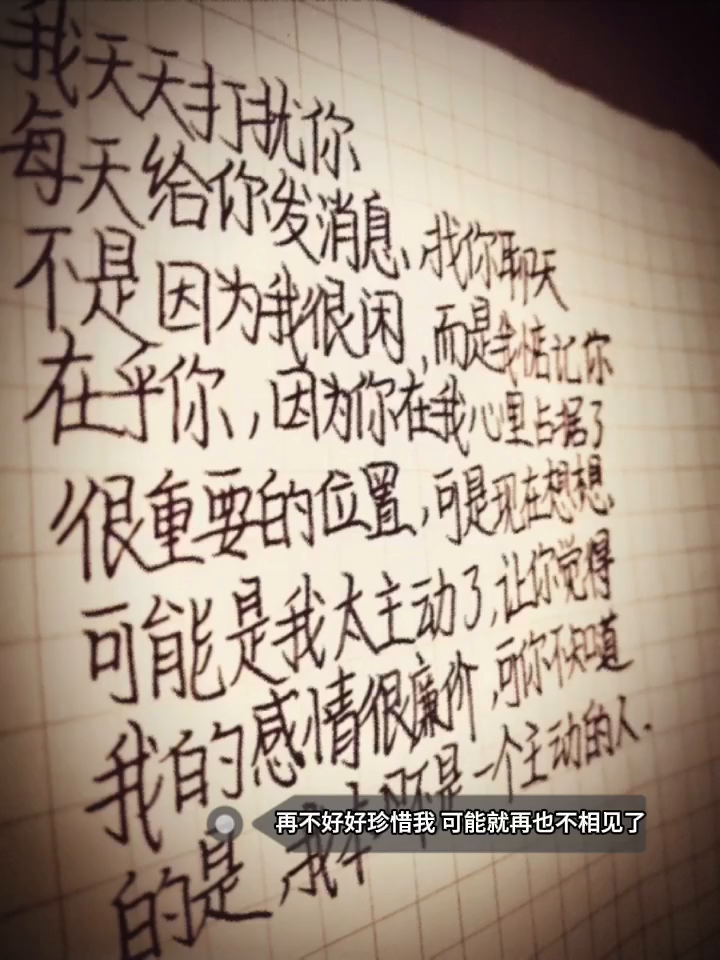 我天天打扰你
每天给你发消息、找你聊天
不是因为我很闲,而是我惦记你
在乎你,因为你在我心里占据了
很重要的位置,可是现在想想,
可能是我太主动了,让你觉得
我的感情很廉价,可你不知道
的是,我本不是一个主动的人.
再不好好珍惜我 可能就再也不相见了